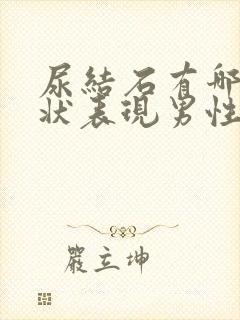 尿結石有哪
狀表現男性
嚴立坤